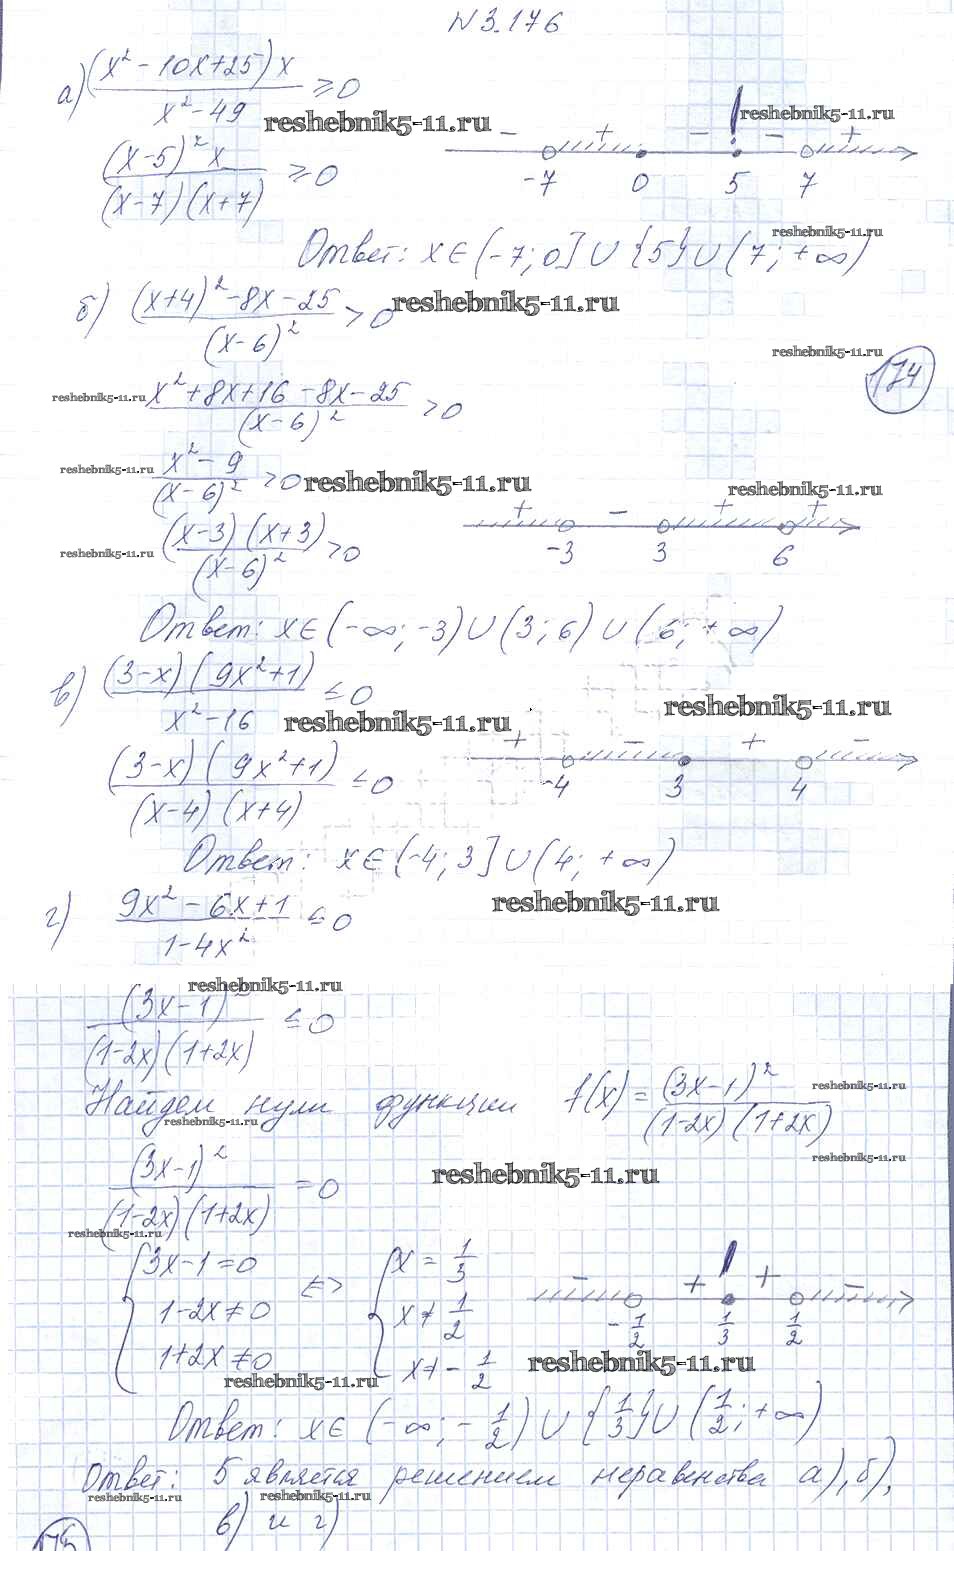 N 3.176
а) (x² - 10x + 25) x / x² - 49 ≥ 0
reshebnik5-11.ru
reshebnik5-11.ru
(x-5)² x / (x-7)(x+7) ≥ 0
- + - ! - +
-7 0 5 7
reshebnik5-11.ru
Ответ: x ∈ (-7; 0] ∪ {5} ∪ (7; +∞)
б) (x+4)² - 8x - 25 / (x-6)² > 0
reshebnik5-11.ru
reshebnik5-11.ru
174
reshebnik5-11.ru
x² + 8x + 16 - 8x - 25 / (x-6)² > 0
reshebnik5-11.ru
x² - 9 / (x-6)² > 0
reshebnik5-11.ru
reshebnik5-11.ru
reshebnik5-11.ru
(x-3)(x+3) / (x-6)² > 0
+ - + +
-3 3 6
Ответ: x ∈ (-∞; -3) ∪ (3; 6) ∪ (6; +∞)
в) (3-x)(9x²+1) / x² - 16 ≤ 0
reshebnik5-11.ru
reshebnik5-11.ru
(3-x)(9x²+1) / (x-4)(x+4) ≤ 0
+ - + -
-4 3 4
Ответ: x ∈ (-4; 3] ∪ (4; +∞)
г) 9x² - 6x + 1 / 1 - 4x² ≤ 0
reshebnik5-11.ru
reshebnik5-11.ru
(3x-1)² / (1-2x)(1+2x) ≤ 0
Найдем нули функции f(x) = (3x-1)² / (1-2x)(1+2x)
reshebnik5-11.ru
reshebnik5-11.ru
reshebnik5-11.ru
(3x-1)² / (1-2x)(1+2x) = 0
reshebnik5-11.ru
reshebnik5-11.ru
{ 3x-1=0 <=> { x = 1/3
1-2x ≠ 0 x ≠ 1/2
1+2x ≠ 0 x ≠ - 1/2
- + ! + -
-1/2 1/3 1/2
reshebnik5-11.ru
reshebnik5-11.ru
Ответ: x ∈ (-∞; -1/2) ∪ {1/3} ∪ (1/2; +∞)
Ответ: 5 является решением неравенства а), б),
reshebnik5-11.ru
reshebnik5-11.ru
в) и г)